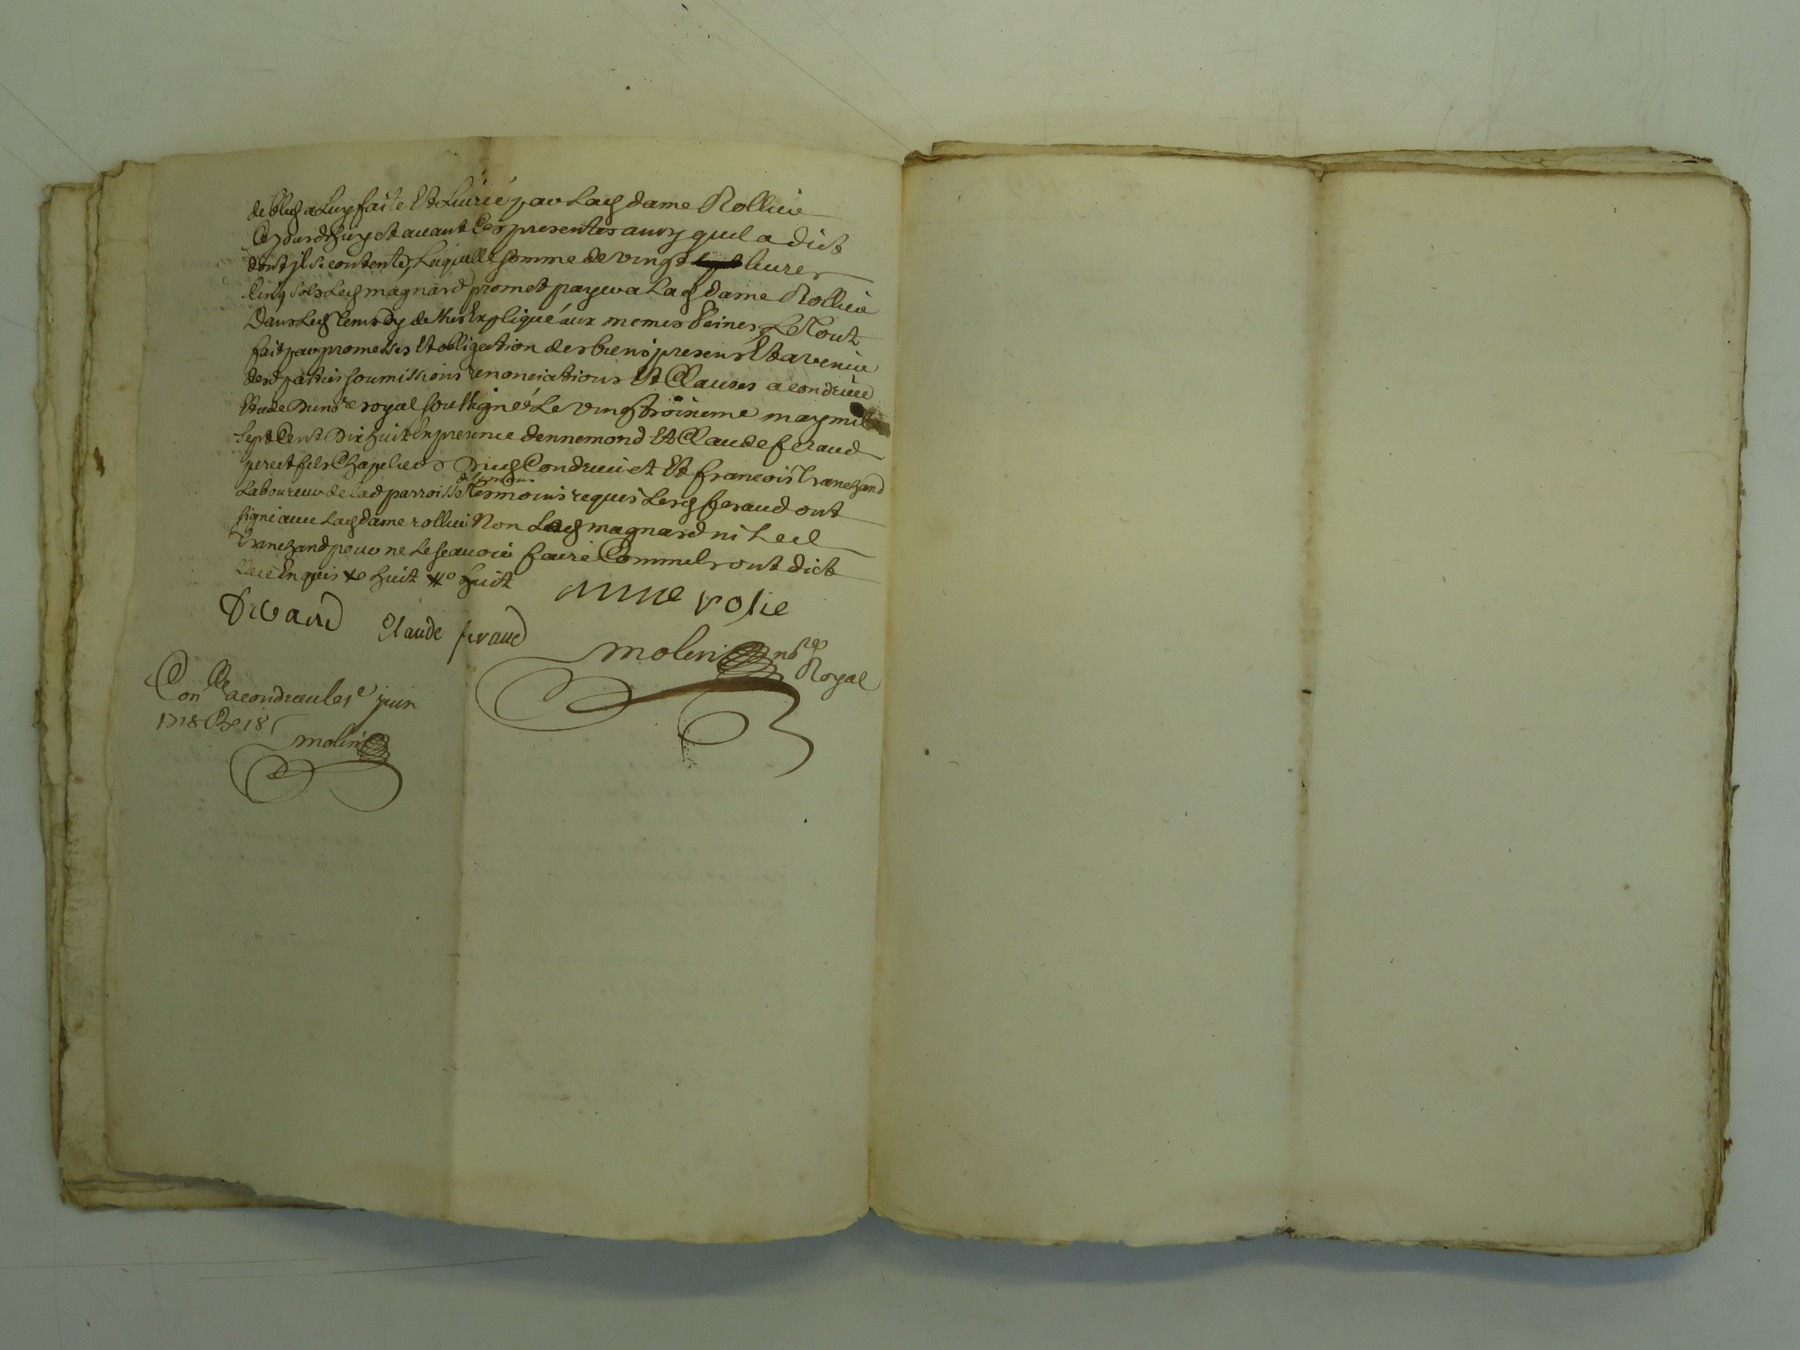 de bled a luy faite et livré par lad dame Rollieu
Cejourdhuy et avant les presentes ainsy quil a dict
dont il se contente, Laquelle somme de vingt livres
Cinq sols led magnard promet payer a lad dame Rollieu
Dans led tems dy dessus Expliqué aux memes Peines, Le Tout
fait par promesses Et obligation des biens presens Et avenir
desd parties soumissions renonciations Et Clauses a condrieu
Etude du no.re royal soussigné Le vingt troisieme may mil
sept Cent Dix huit En presence dennemond Et Claude feraud
pere et fils Chapliers dud Condrieu et Et francois Tranchand
Laboureur de lad parroisse Tesmoins requis Lesd feraud ont
signé avec lad dame rollieu Non Led magnard ni Led
Tranchand pour ne le scavoir faire Comme Ils ont dict
de ce Enquis huit huit
anne rolie
Claude feraud
molin no.re
Royal
Con.lle a condrieu le 1.e juin
1718 18 s
molin